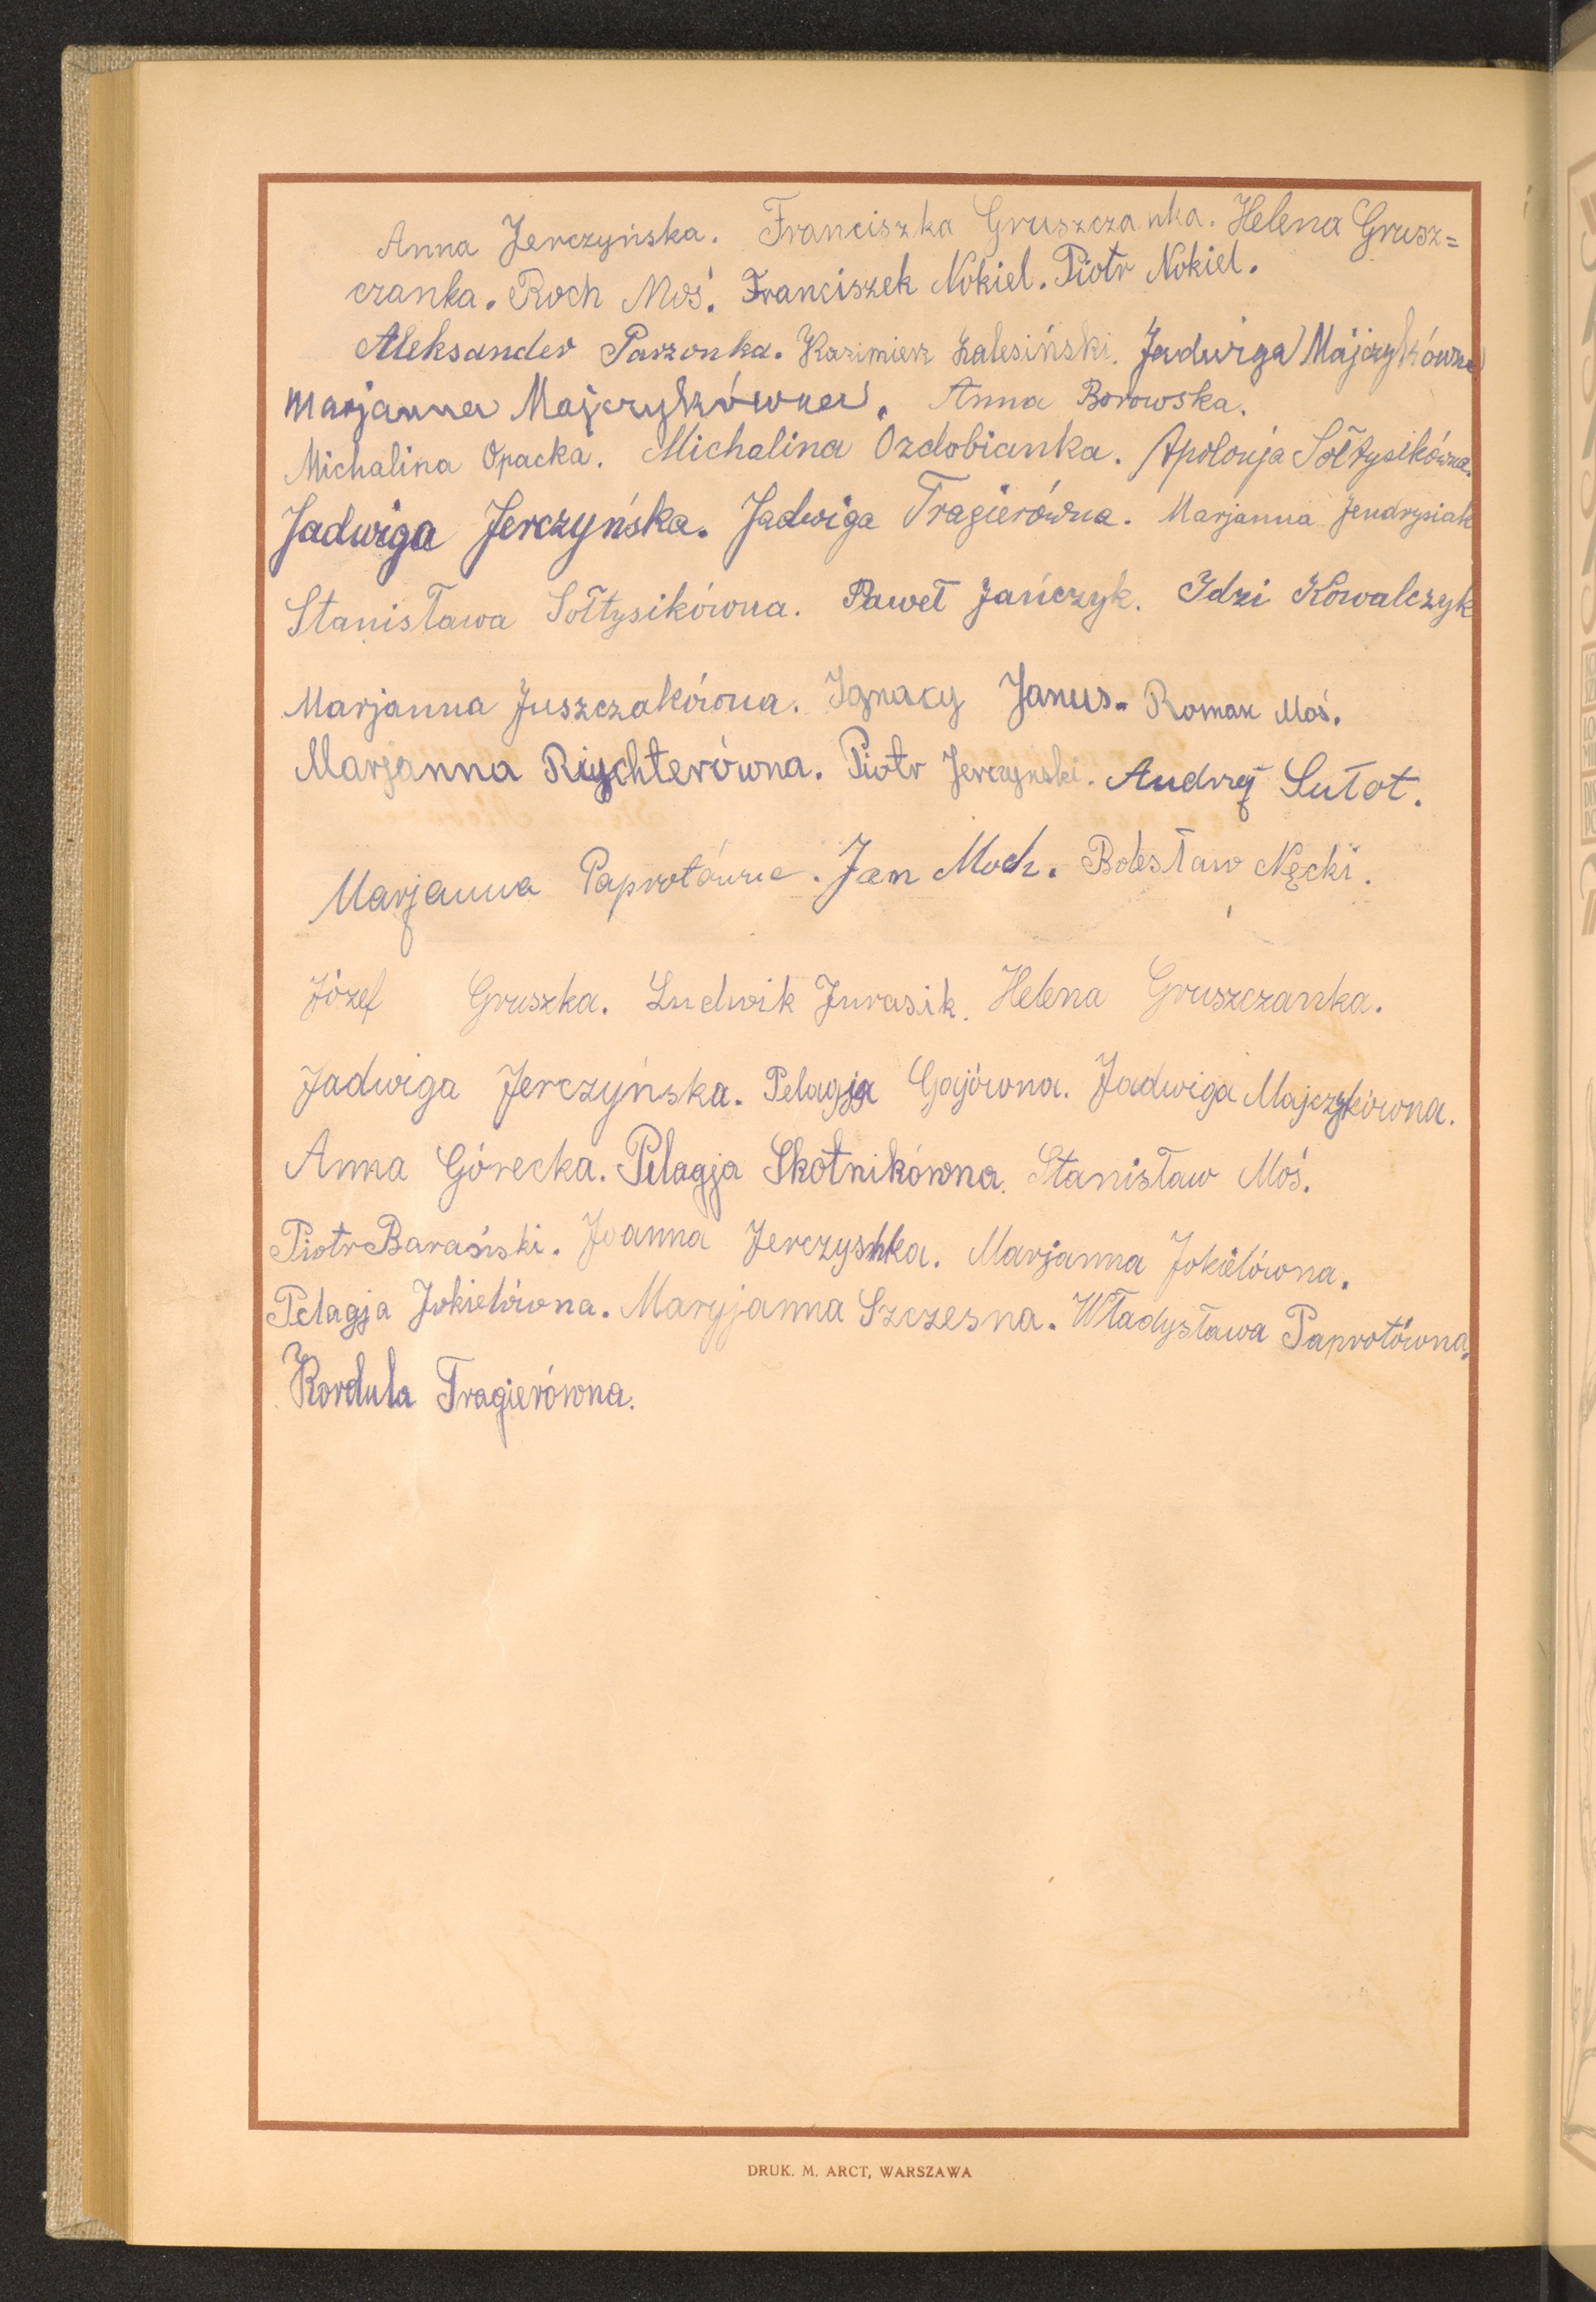 Anna Jerczyńska. Franciszka Gruszczanka. Helena Grusz=
czanka. Roch Moś. Franciszek Nokiel. Piotr Nokiel.
Aleksander Parzonka. Kazimierz Zalesiński. Jadwiga Majczykówna
Marjanna Majczykówna. Anna Borowska.
Michalina Opacka. Michalina Ozdobianka. Apolonja Sołtysikówna.
Jadwiga Jerczyńska. Jadwiga Tragierówna. Marjanna Jendrysiak
Stanisława Sołtysikówna. Paweł Jańczyk. Idzi Kowalczyk
Marjanna Juszczakówna. Ignacy Janus. Roman Moś.
Marjanna Riychterówna. Piotr Jerczynski. Andrzej Sułot.
Marjanna Paprotówna. Jan Moch. Bolesław Nęcki.
Józef Gruszka. Ludwik Jurasik. Helena Gruszczanka.
Jadwiga Jerczyńska. Pelagja Gajówna. Jadwiga Majczykówna.
Anna Górecka. Pelagja Skotnikówna. Stanisław Moś.
Piotr Barański. Joanna Marjanna Jokielówna.
Pelagja Jokielówna. Maryjanna Szczesna. Władysława Paprotówna.
Kordula Tragierówna.
DRUK. M. ARCT, WARSZAWA